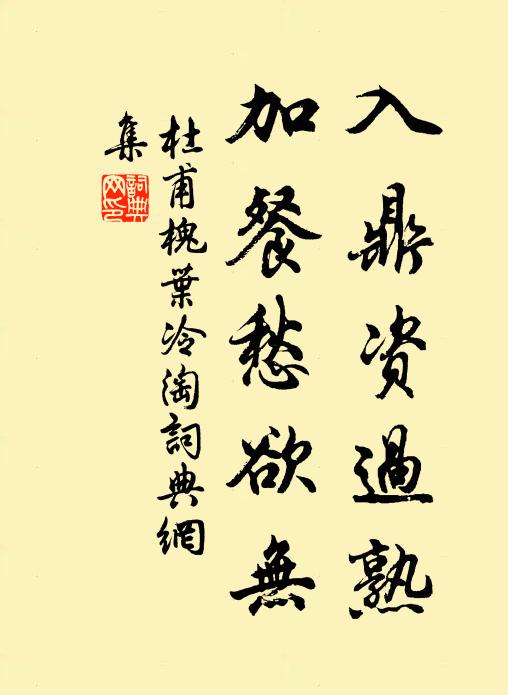 入鼎资過熟
加餐愁欲無
杜甫槐葉冷淘詞典網
集
詞典网印